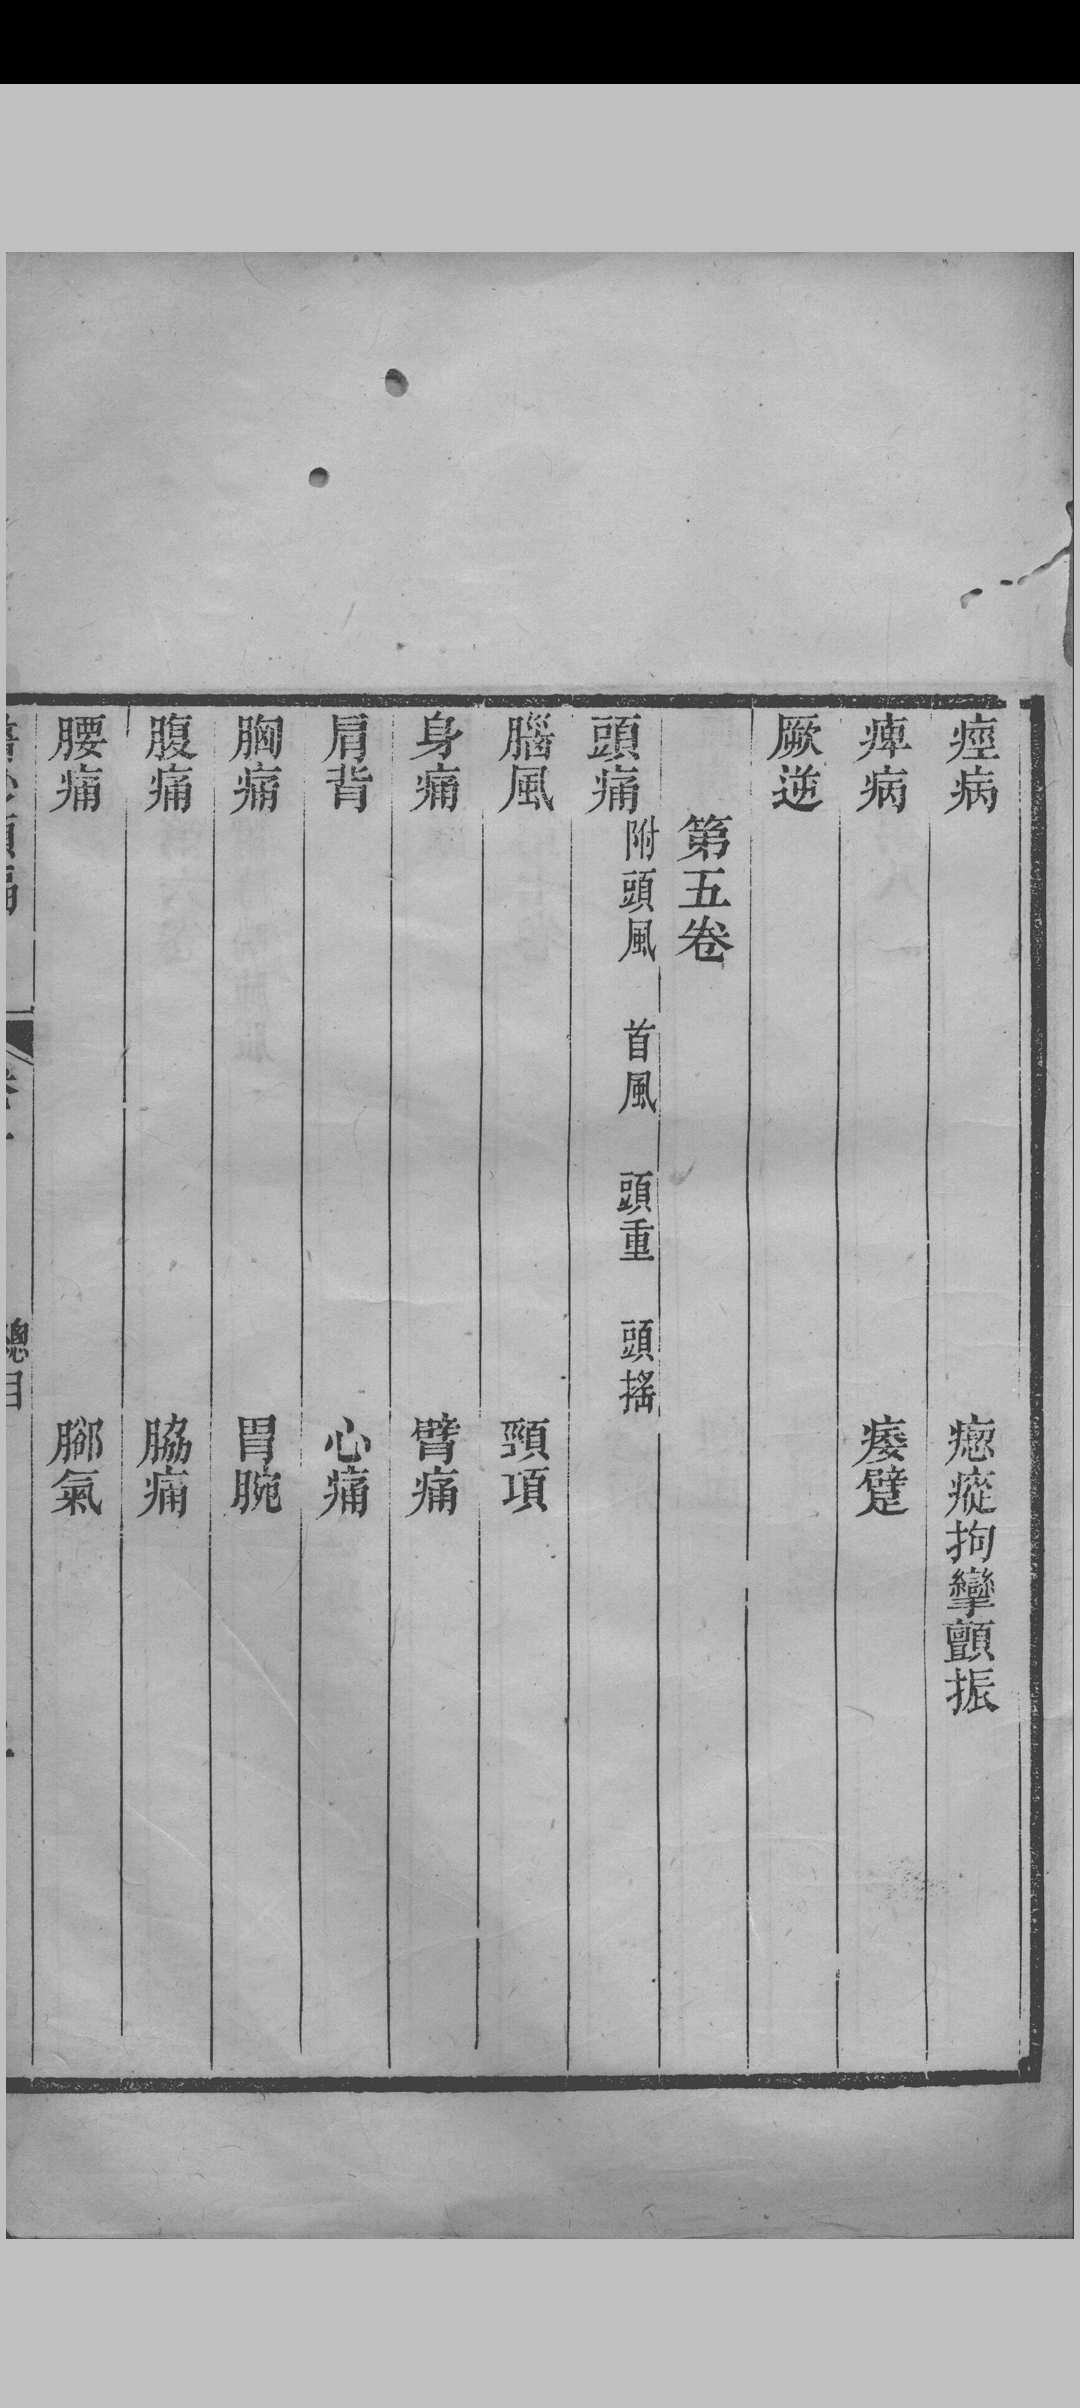 痙病　瘛瘲拘攣顫振
痺病　痿躄
厥逆
第五卷
頭痛 附頭風 首風 頭重 頭搖
腦風　頸項
身痛　臂痛
肩背　心痛
胸痛　胃腕
腹痛　脇痛
腰痛　腳氣
總目